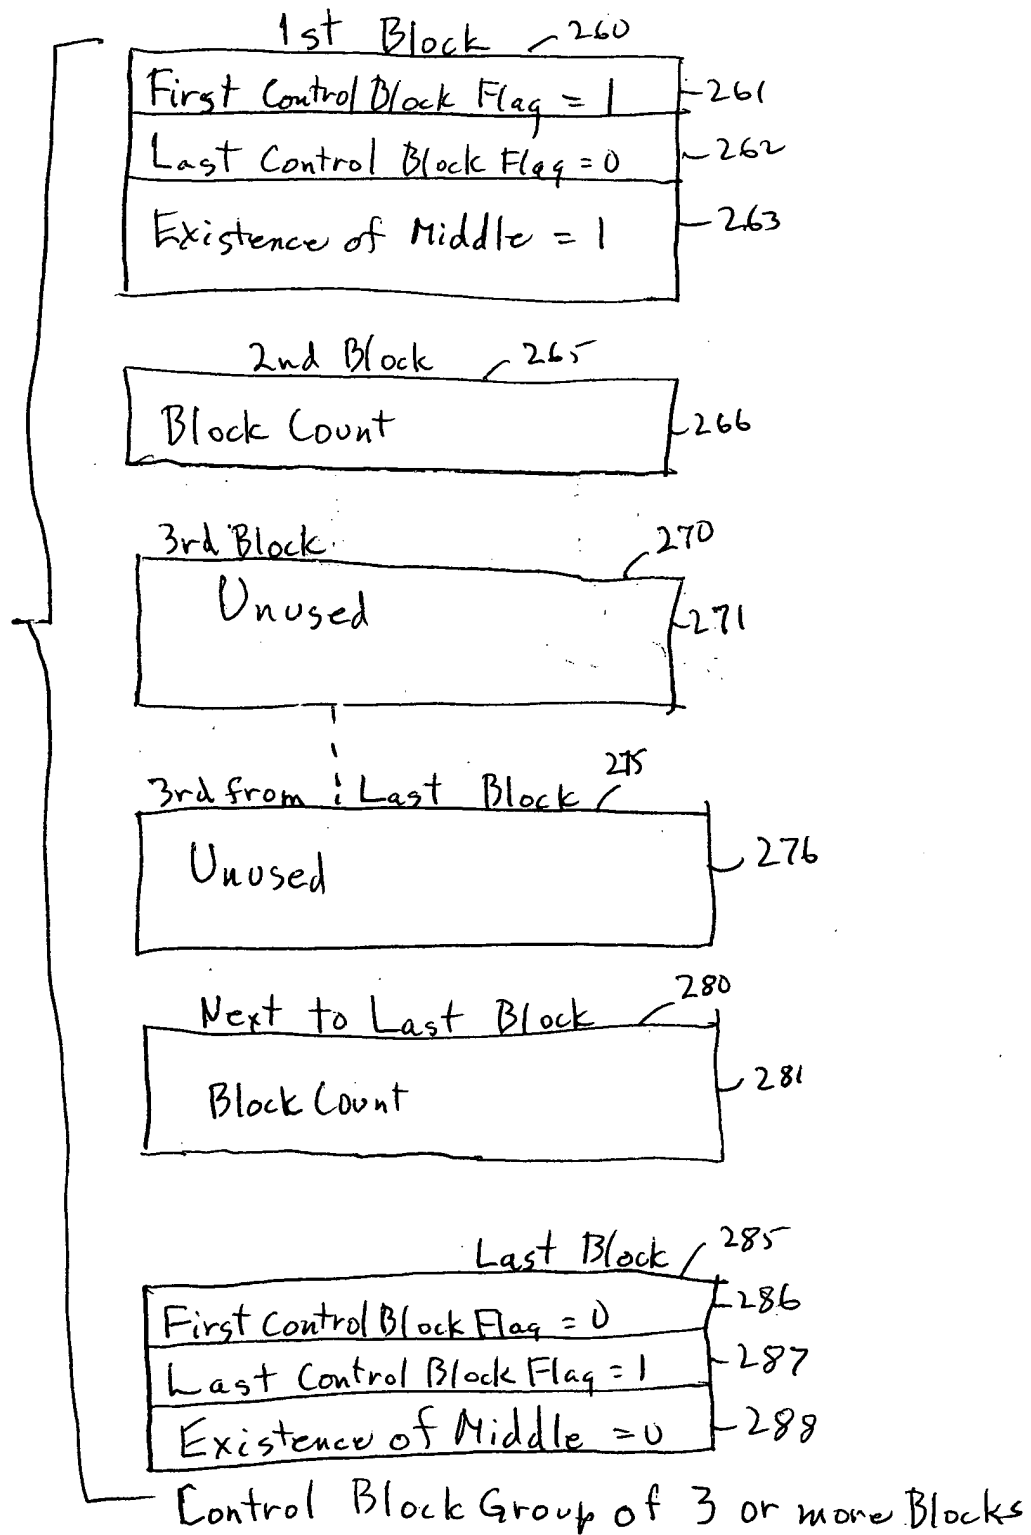 1st Block 260
First Control Block Flag = 1 261
Last Control Block Flag = 0 262
Existence of Middle = 1 263
2nd Block 265
Block Count 266
3rd Block 270
Unused 271
3rd from Last Block 275
Unused 276
Next to Last Block 280
Block Count 281
Last Block 285
First Control Block Flag = 0 286
Last Control Block Flag = 1 287
Existence of Middle = 0 288
Control Block Group of 3 or more Blocks